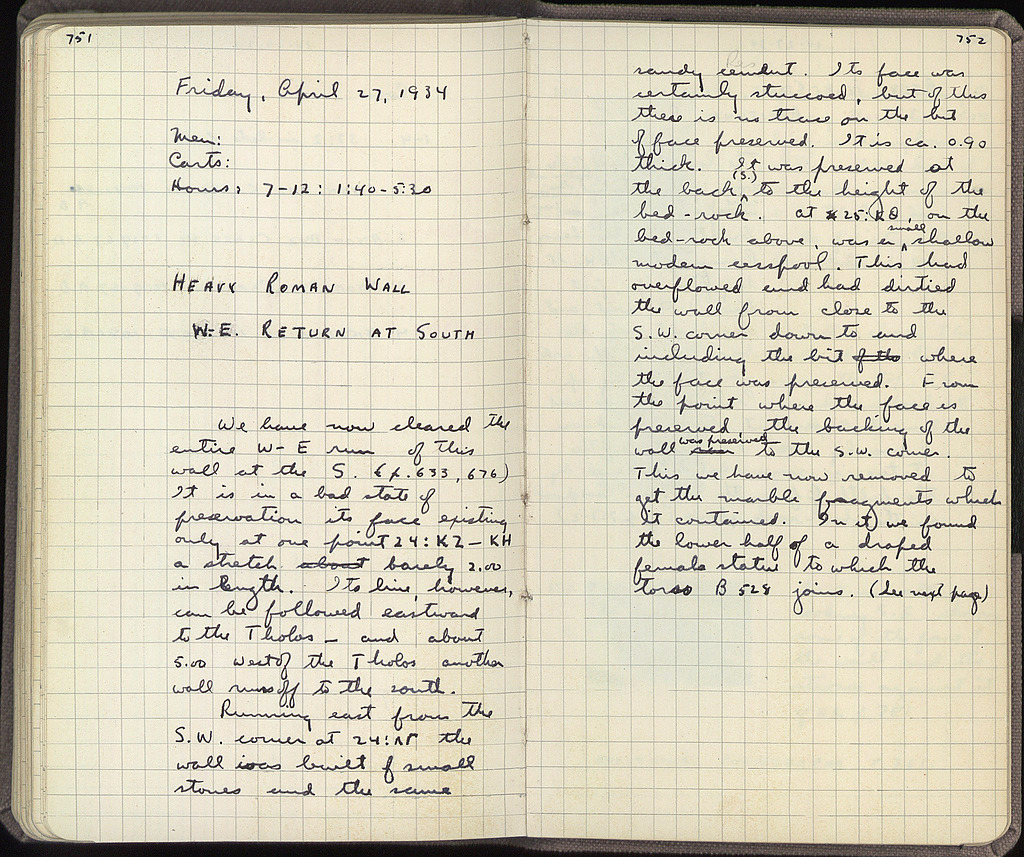 751
Friday, April 27, 1934
Men:
Carts:
Hours: 7-12: 1:40-5:30
HEAVY ROMAN WALL
W-E. RETURN AT SOUTH
We have now cleared the
entire W-E run of this
wall at the S. (p. 633, 676)
It is in a bad state of
preservation its face existing
only at one point 24: KZ - KH
a stretch about barely 2.00
in length. Its line, however,
can be followed eastward
to the Tholos - and about
5.00 west of the Tholos another
wall runs off to the south.
Running east from the
S.W. corner at 24: the
wall was built of small
stones and the same
752
sandy cement. Its face was
certainly stuccoed, but of this
there is no trace on the bit
of face preserved. It is ca. 0.90
thick. It was preserved at
the back (S.) to the height of the
bed-rock. at 25: KΘ, on the
bed-rock above, was a small shallow
modern cesspool. This had
overflowed and had dirtied
the wall from close to the
S.W. corner down to and
including the bit of the where
the face was preserved. From
the point where the face is
preserved, the backing of the
wall was preserved to the S.W. corner.
This we have now removed to
get the marble fragments which
it contained. In it we found
the lower half of a draped
female statue to which the
torso B 528 joins. (See next page)